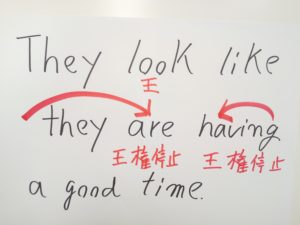 They look like
王
they are having
王権停止 王権停止
a good time.